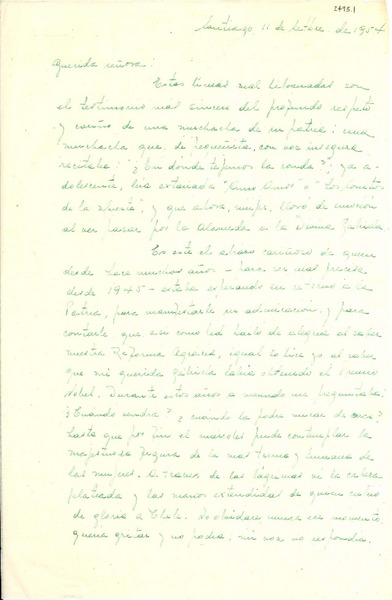 2495.1
Santiago, 11 de octubre de 1954
Querida señora:
Estas líneas mal hilvanadas son
el testimonio mas sincero del profundo respeto
y cariño de una muchacha de su patria; una
muchacha que, de pequeñita, con voz insegura
recitaba: ¿En dónde tejemos la ronda?; ya a-
dolescente, leía extasiada "Amo Amor" o "Los sonetos
de la Muerte", y que ahora, mujer, lloró de emoción
al ver pasar por la Alameda a la Divina Gabriela.
Es este el abrazo cariñoso de quien
desde hace muchos años - para ser mas precisa
desde 1945 - estaba esperando su retorno a la
Patria, para manifestarle su admiración y para
contarle que, así como Ud. bailó de alegría al saber
nuestra Reforma Agraria, igual lo hice yo al saber
que mi querida Gabriela había obtenido el Premio
Nobel. Durante estos años a menudo me preguntaba:
¿Cuándo vendrá? ¿cuándo la podré mirar de cerca?
hasta que por fin el miércoles pude contemplar la
majestuosa figura de la mas tierna y humana de
las mujeres. A traves de las lágrimas vi la cabeza
plateada y las manos extendidas de quien cubrió
de gloria a Chile. No olvidaré nunca ese momento;
quería gritar y no podía; mi voz no respondía.